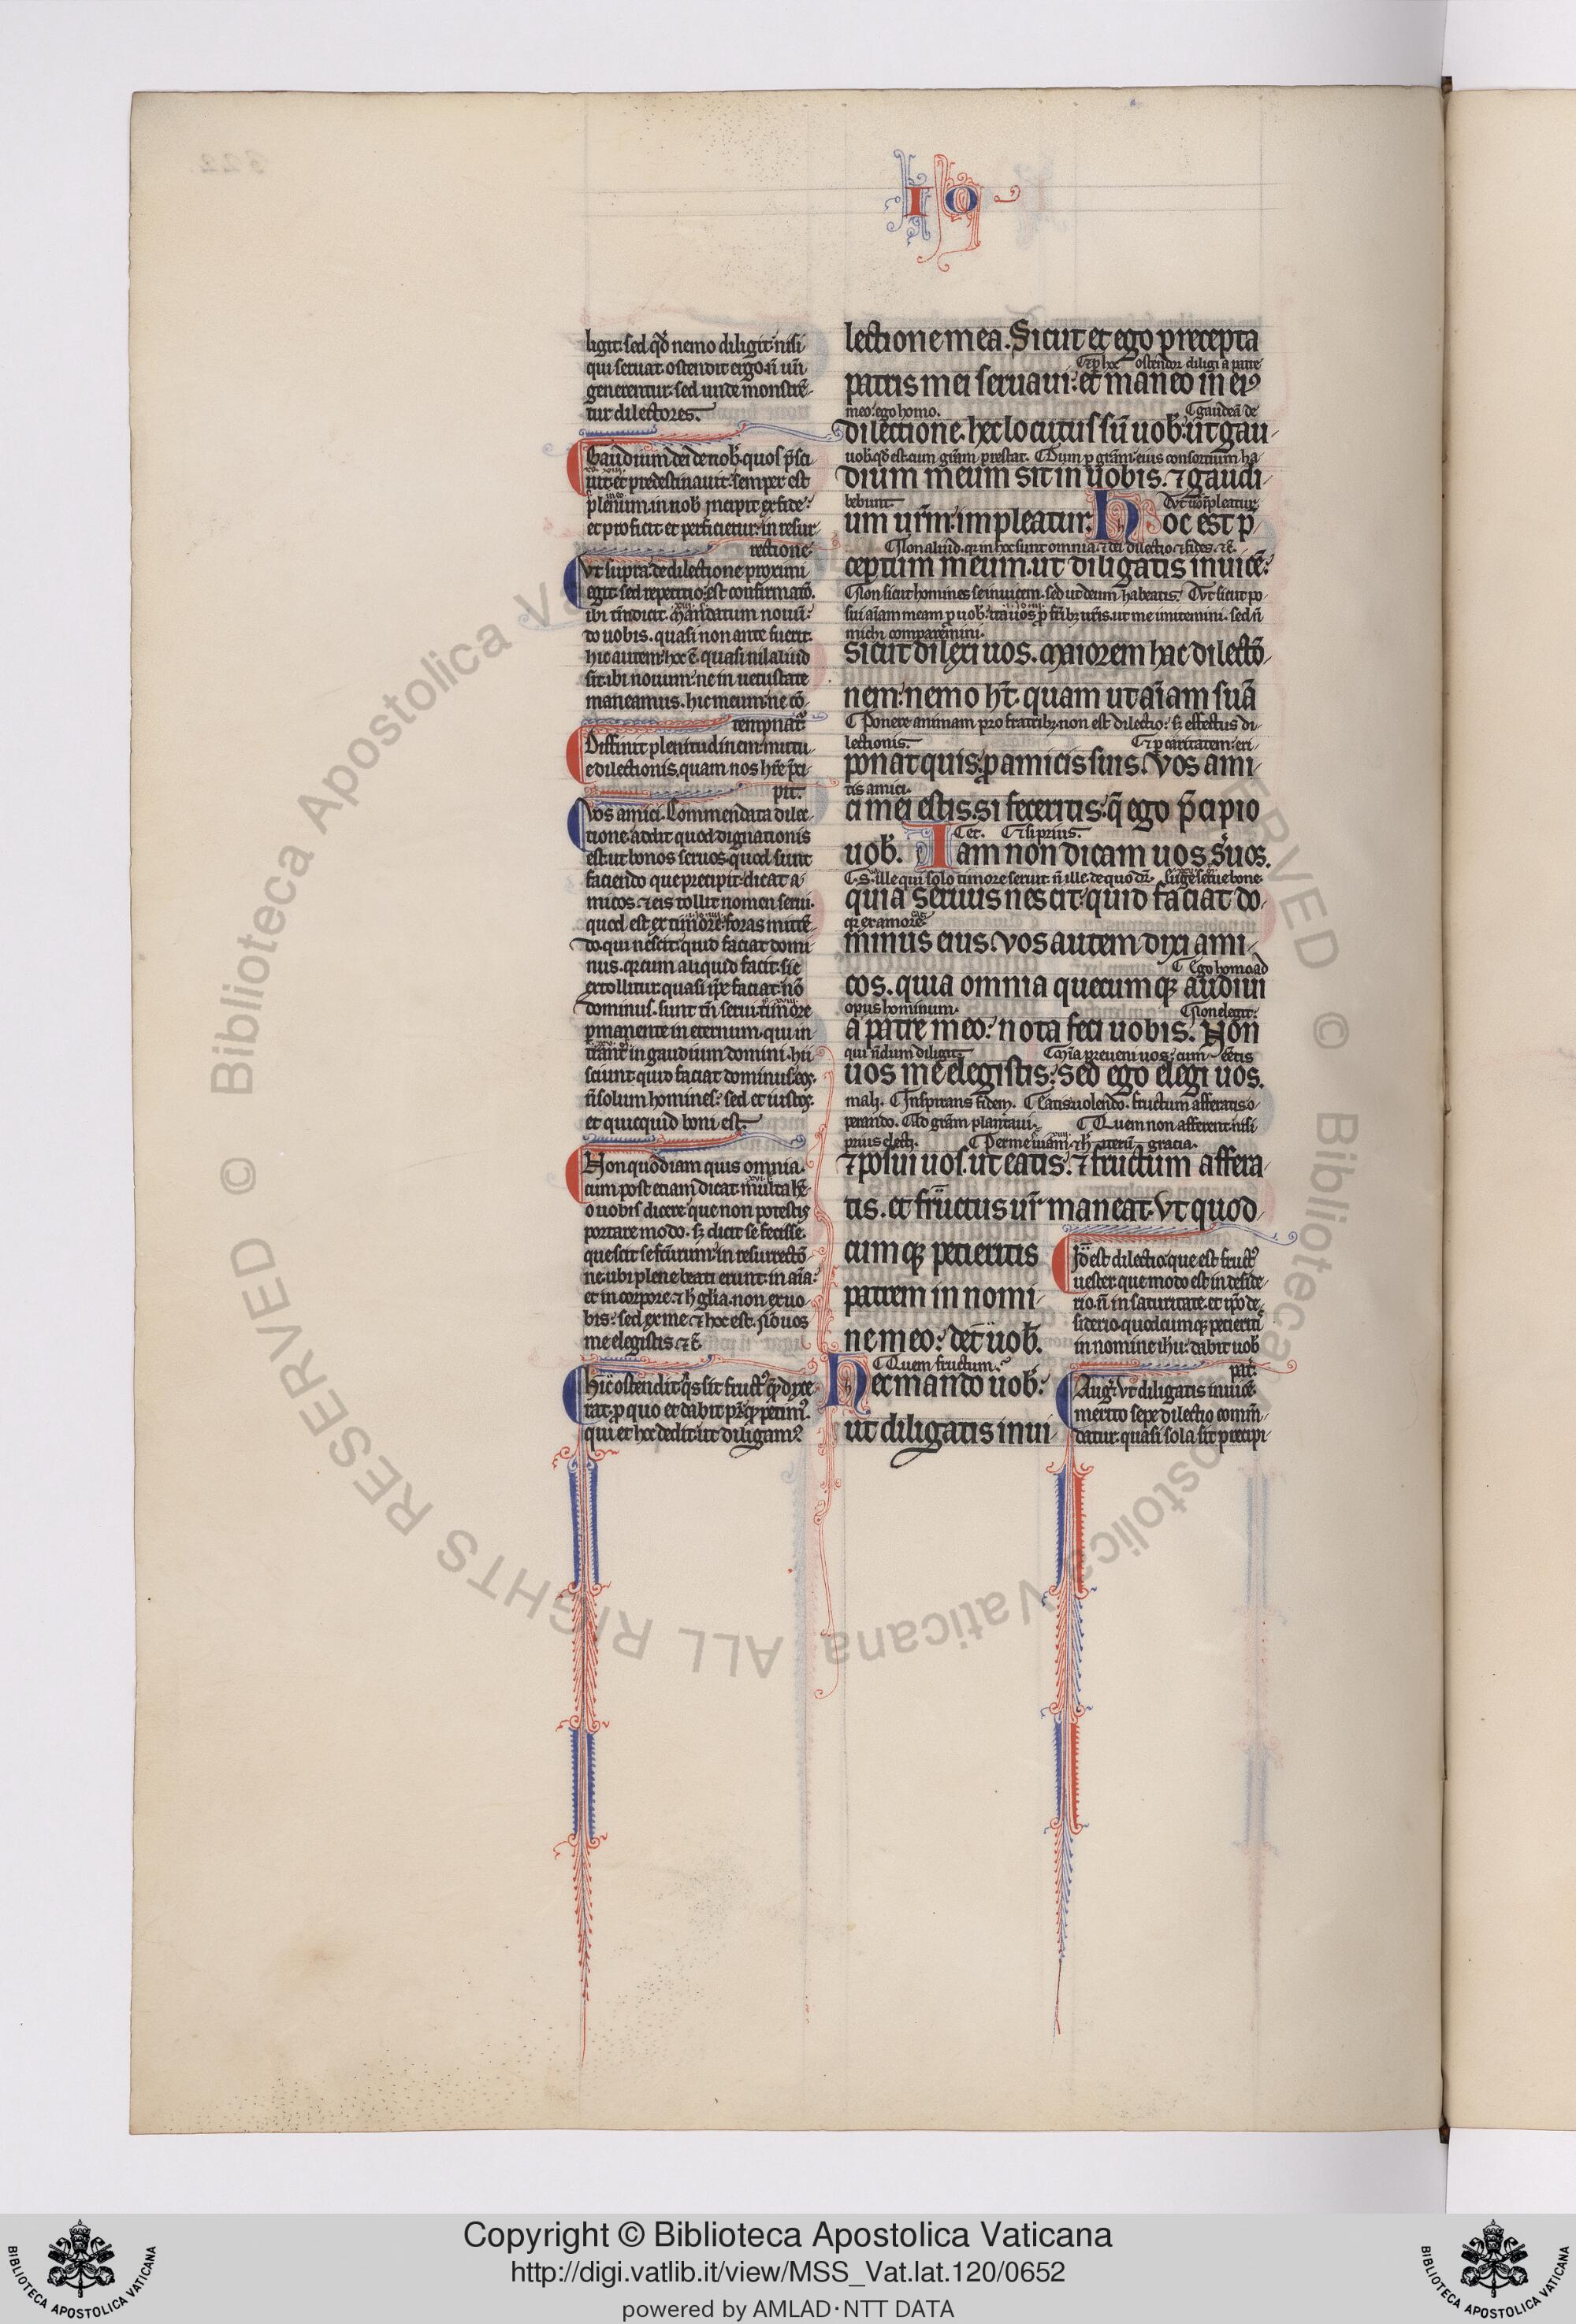 IO
ligit. sed qđ nemo diligit. nisi
qui seruat. ostendit ergo. ñ uñ
generentur. sed unde monstrẽ-
tur dilectores.
Gaudium dei de nob̾. quos p̃sci-
uit et predestinauit. semper est
plenum. in nob̾ incipit ex fide.
et proficit et perficietur. in resur-
rectione.
Vt supra. de dilectione proximi
egit. sed repetitio. est confirmatõ.
ibi tñ dicit. Mandatum nouũ.
do uobis. quasi non ante fuerit.
hic autem. hoc ẽ. quasi nil aliud
sit. ibi nouum. ne in uetustate
maneamus. hic meum. ne cõ-
tempnat᷑.
Diffinit plenitudinem mutu-
e dilectionis, quam nos hr̃e p̃ci-
pit.
Vos amici. Commendata dilec-
tione. addit quod dignationis
est. ut bonos seruos. quod sunt
faciendo que precipit. dicat a-
micos. ⁊ eis tollit nomen serui.
quod est ex timore. foras mittẽ-
do. qui nescit. quid faciat domi-
nus. qr cum aliquid facit. sic
extollitur. quasi ip̃e faciat. nõ
dominus. sunt tñ serui. timore
ꝑmanente in eternum. qui in-
trant in gaudium domini. hii
sciunt quid faciat dominus eoꝝ.
ñ solum homines. sed et iustoꝝ.
et quicquid boni est.
Non quod iam quis omnia.
cum post etiam dicat. multa hẽ-
o uobis dicere. que non potestis
portare modo. sꝫ dicit se fecisse.
que scit se fcturum. in resurrectõ-
ne. ubi plene beati erunt. in aĩa.
et in corpore. ⁊ h̾ glĩa. non ex uo-
bis. sed ex me. ⁊ hoc est. Nõ uos
me elegistis. ⁊c̃.
Hic ostendit. q̾s sit fruct᷒. quẽ dixe-
rat. ꝓ quo et dabit pr̃. qđ petim᷒.
qui et hoc dedit. ut diligam᷒.
lectione mea. Sicut et ego precepta
Et ꝑ hoc ostendor diligi a patre
patris mei seruaui. et maneo in ei᷒
meo. ego homo. gaudeã de
dilectione. hec locutus sũ uob̾. ut gau-
uob̾. qđ est. cum gr̃am prestat. Dum ꝑ gr̃am. eius consortium ha-
dium meum sit in uobis. ⁊ gaudi-
bebunt. Vt uõ impleatur.
um ur̃m. impleatur. Hoc est p̃-
Non aliud. qr in hoc sunt omnia. ⁊ dei dilectio. ⁊ fides. ⁊c̃.
ceptum meum. ut diligatis inuicẽ.
Non sicut homines se inuicem. sed ut deum habeatis. Vt sicut po-
sui aĩam meam ꝓ uob̾. ita uos ꝓ fr̃ibꝫ ur̃is. ut me imitemini. sed ñ
michi comparemini.
sicut dilexi uos. Maiorem hac dilectõ-
nem. nemo hr̃t. quam ut aĩam suã
Ponere animam pro fratribꝫ. non est dilectio. sꝫ effectus di-
lectionis. Et ꝑ caritatem. eri-
ponat quis. ꝓ amicis suis. Vos ami-
tis amici.
ci mei estis. si feceritis. q̃ ego p̃cipio
Cet. Et si prius.
uob̾. Iam non dicam uos s̃uos.
S. ille qui solo timore seruit. ñ ille. de quo dr̃. Euge serue bone.
quia seruus nescit. quid faciat do-
qr ex amore.
minus eius. Vos autem dixi ami-
Ego homo ad
cos. quia omnia quecumqꝫ audiui
opus hominum. Non elegit.
a patre meo. nota feci uobis. Non
qui nõdum diligit. Mĩa preueni uos. cum eẽtis
uos me elegistis. sed ego elegi uos.
mali. Inspirans fidem. Eatis uolendo. fructum afferatis o-
perando. Ad gr̃am plantaui. Quem non afferent nisi
prius electi. Per me uiam. gracia.
⁊ posui uos. ut eatis. ⁊ fructum affera-
tis. et fructus ur̃ maneat. Vt quod-
cumqꝫ petieritis
patrem in nomi-
ne meo. det uob̾.
Quem fructum.
Hec mando uob̾.
ut diligatis inui-
Id est dilectio. que est fruct᷒
uester. que modo est in deside-
rio. ñ in saturitate. et ip̃o de-
siderio. quodcumqꝫ petieriti᷒
in nomine ihu. dabit uob̾
pat̾.
Aug᷒. Vt diligatis inuicẽ.
merito sepe dilectio comm̃-
datur. quasi sola sit precipi-
© Biblioteca Apostolica Vaticana ALL RIGHTS RESERVED
Copyright © Biblioteca Apostolica Vaticana
http://digi.vatlib.it/view/MSS_Vat.lat.120/0652
powered by AMLAD·NTT DATA
BIBLIOTECA APOSTOLICA VATICANA
BIBLIOTECA APOSTOLICA VATICANA